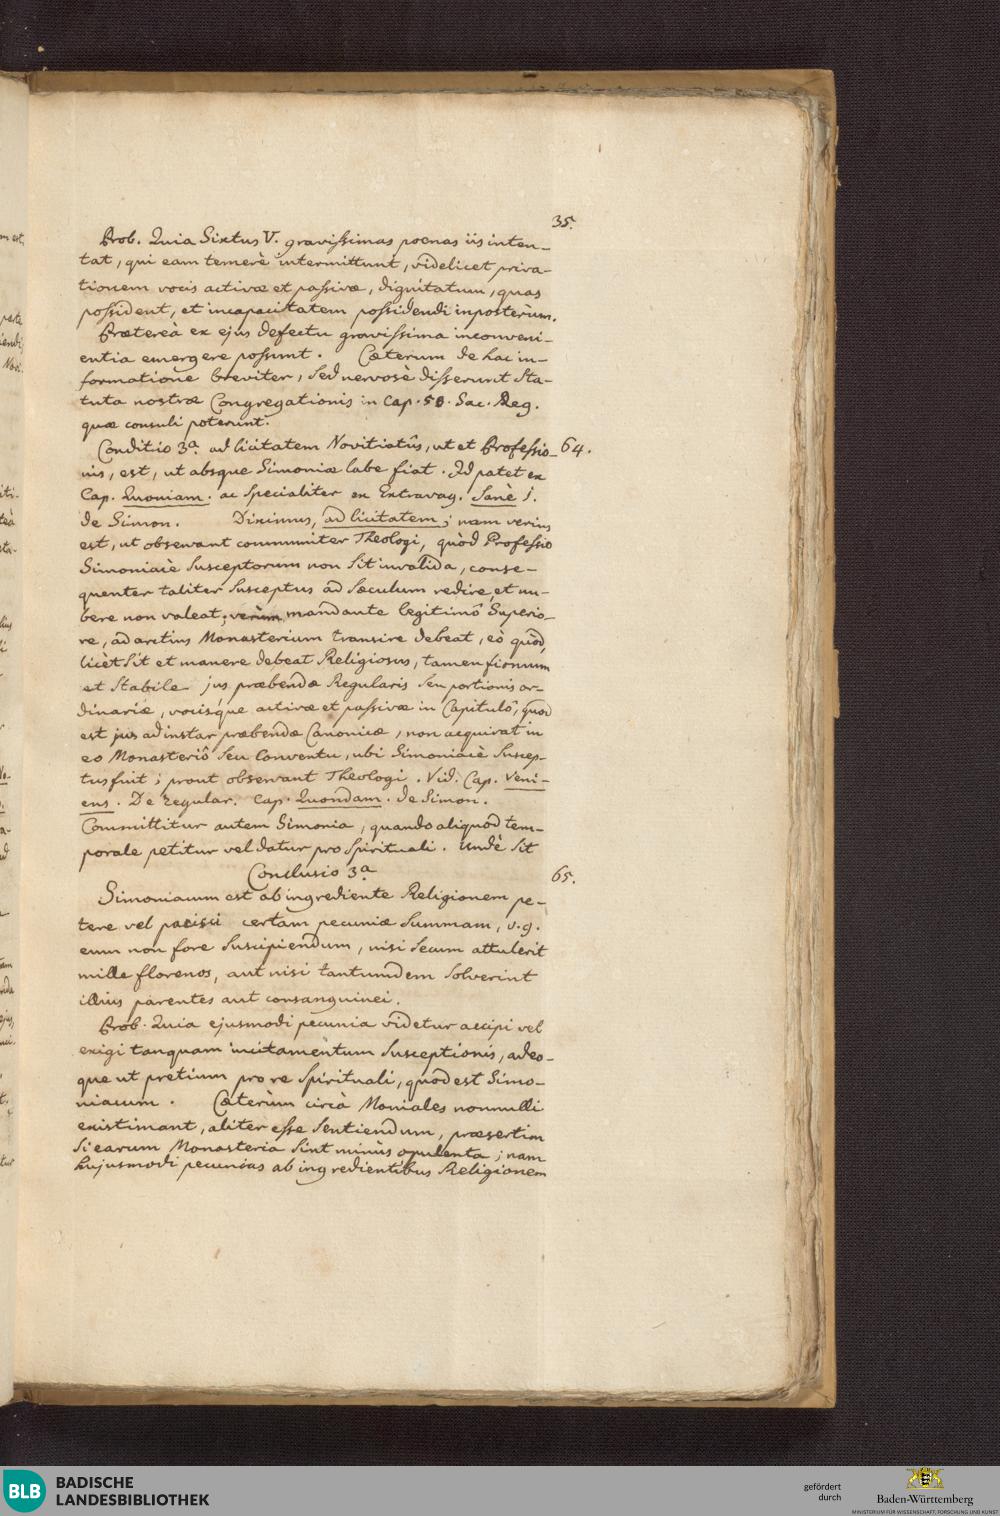 35.
Prob. Quia Sixtus V. gravissimas poenas iis inten-
tat, qui eam temerè intermittunt, videlicet priva-
tionem vocis activæ et passivæ, dignitatum, quas
possident, et incapacitatem possidendi inposterùm.
Prætereà ex ejus defectu gravissima inconveni-
entia emergere possunt. Cæterum de hac in-
formatione breviter, sed nervosè disserunt Sta-
tuta nostræ Congregationis in Cap. 50. Sac. Reg.
quæ consuli poterunt.
Conditio 3.a ad licitatem Novitiatûs, ut et Professio- 64.
nis, est, ut absque Simoniæ labe fiat. Id patet ex
Cap. Quoniam. ac specialiter ex Extravag. Sanè 1.
de Simon. Diximus, ad licitatem; nam verius
est, ut observant communiter Theologi, quòd Professio
Simoniacè susceptorum non sit invalida, conse-
quenter taliter susceptus ad sæculum redire, et nu-
bere non valeat; verùm mandante legitimô Superio-
re, ad arctius Monasterium transire debeat, eò quòd,
licèt sit et manere debeat Religiosus, tamen firmum
et stabile jus præbendæ Regularis seu portionis or-
dinariæ, vocisque activæ et passivæ in Capitulô, quod
est jus ad instar præbendæ Canonicæ, non acquirat in
eo Monasteriô seu Conventu, ubi Simoniacè suscep-
tus fuit; prout observant Theologi. Vid. Cap. Veni-
ens. De regular. Cap. Quondam. de Simon.
Committitur autem Simonia, quando aliquod tem-
porale petitur vel datur pro spirituali. Undè sit
Conclusio 3.a 65.
Simoniacum est ab ingrediente Religionem pe-
tere vel pacisci certam pecuniæ summam, v.g.
eum non fore suscipiendum, nisi secum attulerit
mille florenos, aut nisi tantumdem solverint
illius parentes aut consanguinei.
Prob. Quia ejusmodi pecunia videtur accipi vel
exigi tanquam incitamentum susceptionis, adeo-
que ut pretium pro re spirituali, quod est Simo-
niacum. Cæterùm circà Moniales nonnulli
existimant, aliter esse sentiendum, præsertim
si earum Monasteria sint minùs opulenta; nam
hujusmodi pecunias ab ingredientibus Religionem
BLB BADISCHE
LANDESBIBLIOTHEK
gefördert
durch
Baden-Württemberg
MINISTERIUM FÜR WISSENSCHAFT, FORSCHUNG UND KUNST